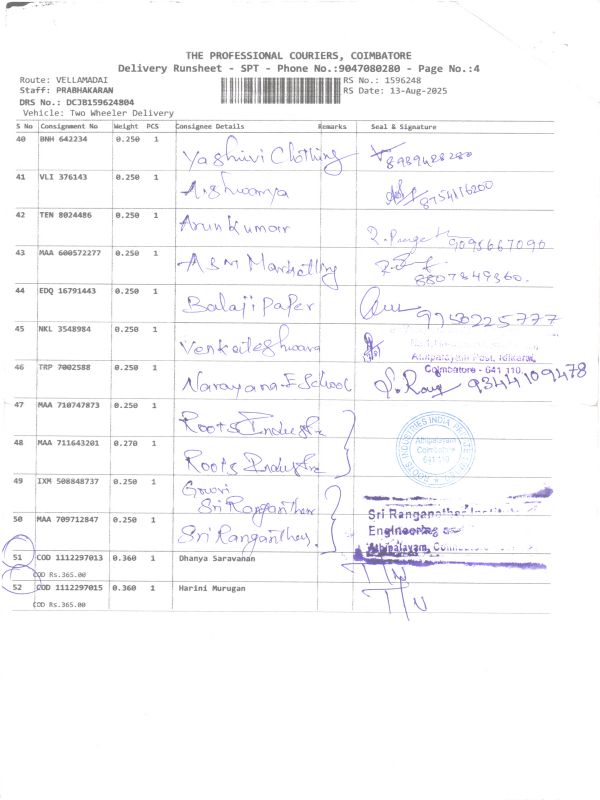 THE PROFESSIONAL COURIERS, COIMBATORE
Delivery Runsheet - SPT - Phone No.:9047080280 - Page No.:4
Route: VELLAMADAI RS No.: 1596248
Staff: PRABHAKARAN RS Date: 13-Aug-2025
DRS No.: DCJB159624804
Vehicle: Two Wheeler Delivery
S No Consignment No Weight PCS Consignee Details Remarks Seal & Signature
40 BNH 642234 0.250 1 Yashuvi Clothing 8939428280
41 VLI 376143 0.250 1 Aishwarya 8754116200
42 TEN 8024486 0.250 1 Arun Kumar 9095667090
43 MAA 600572277 0.250 1 ASM Marketing 8807349360.
44 EDQ 16791443 0.250 1 Balaji Paper 9750225777
45 NKL 3548984 0.250 1 Venkateshwara
Athipalayam Post,
Coimbatore - 641 110.
46 TRP 7002588 0.250 1 Narayana E School 9344109478
47 MAA 710747873 0.250 1 Roots Industr
48 MAA 711643201 0.270 1 Roots Industr
ROOTS INDUSTRIES INDIA
Athipalayam
Coimbatore
641 110
49 IXM 508848737 0.250 1 Gowri
Sri Ranganther
50 MAA 709712847 0.250 1 Sri Ranganther.
Sri Ranganathar
Engineering
Athipalayam, Coimbatore
51 COD 1112297013 0.360 1 Dhanya Saravanan
COD Rs.365.00
52 COD 1112297015 0.360 1 Harini Murugan
COD Rs.365.00